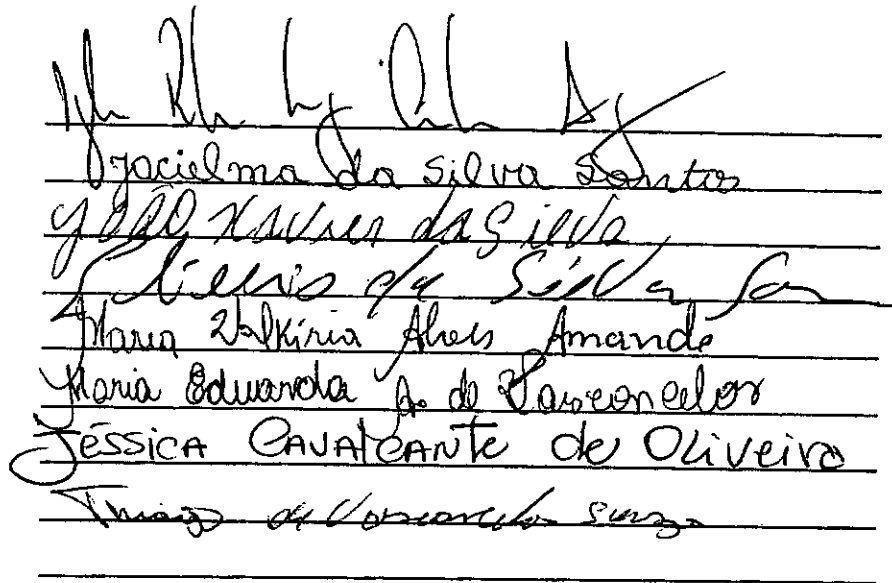 Jacielma da Silva Santos
João Xavier da Silva
da Silva
Maria Walkiria Alves Amande
Maria Eduarda A. de Vasconcelos
Jéssica Cavalcante de Oliveira
Thiago de Vasconcelos Souza